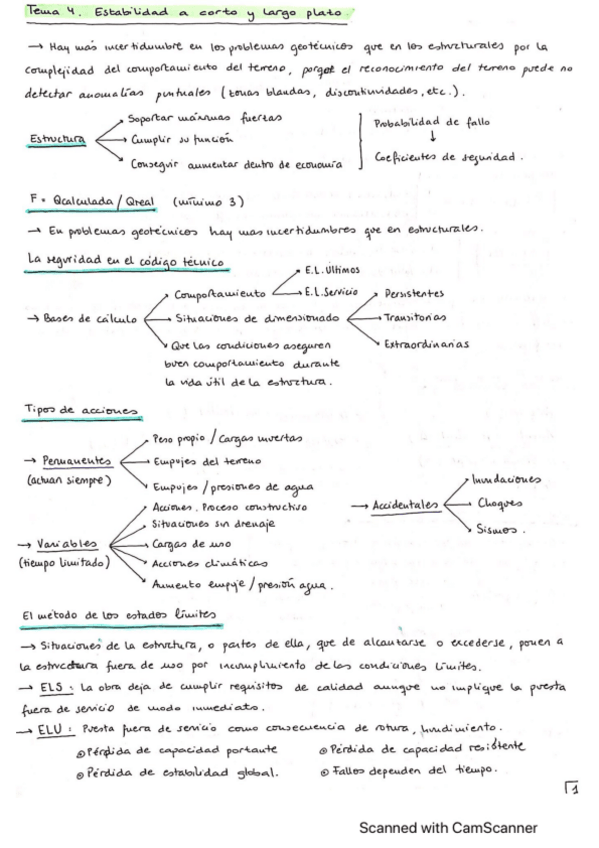 Tema 4. Estabilidad a corto y largo plazo.
→ Hay más incertidumbre en los problemas geotécnicos que en los estructurales por la
complejidad del comportamiento del terreno, porque el reconocimiento del terreno puede no
detectar anomalías puntuales (zonas blandas, discontinuidades, etc.).
Estructura
Soportar máximas fuerzas
Cumplir su función
Conseguir aumentar dentro de economía
Probabilidad de fallo
↓
Coeficientes de seguridad.
F = Qcalculada / Qreal (mínimo 3)
→ En problemas geotécnicos hay mas incertidumbres que en estructurales.
La seguridad en el código técnico
→ Bases de cálculo
Comportamiento
E.L. Últimos
E.L. Servicio
Situaciones de dimensionado
Persistentes
Transitorias
Extraordinarias
Que las condiciones aseguren
buen comportamiento durante
la vida útil de la estructura.
Tipos de acciones
→ Permanentes
(actuan siempre)
Peso propio / Cargas muertas
Empujes del terreno
Empujes / presiones de agua
→ Variables
(tiempo limitado)
Acciones. Proceso constructivo
Situaciones sin drenaje
Cargas de uso
Acciones climáticas
Aumento empuje / presión agua.
→ Accidentales
Inundaciones
Choques
Sismos.
El método de los estados límites
→ Situaciones de la estructura, o partes de ella, que de alcantarse o excederse, ponen a
la estructura fuera de uso por incumplimiento de las condiciones límites.
→ ELS: La obra deja de cumplir requisitos de calidad aunque no implique la puesta
fuera de servicio de modo inmediato.
→ ELU: Puesta fuera de servicio como consecuencia de rotura, hundimiento.
Pérdida de capacidad portante
Pérdida de capacidad resistente
Pérdida de estabilidad global.
Fallos dependen del tiempo.
1
Scanned with CamScanner